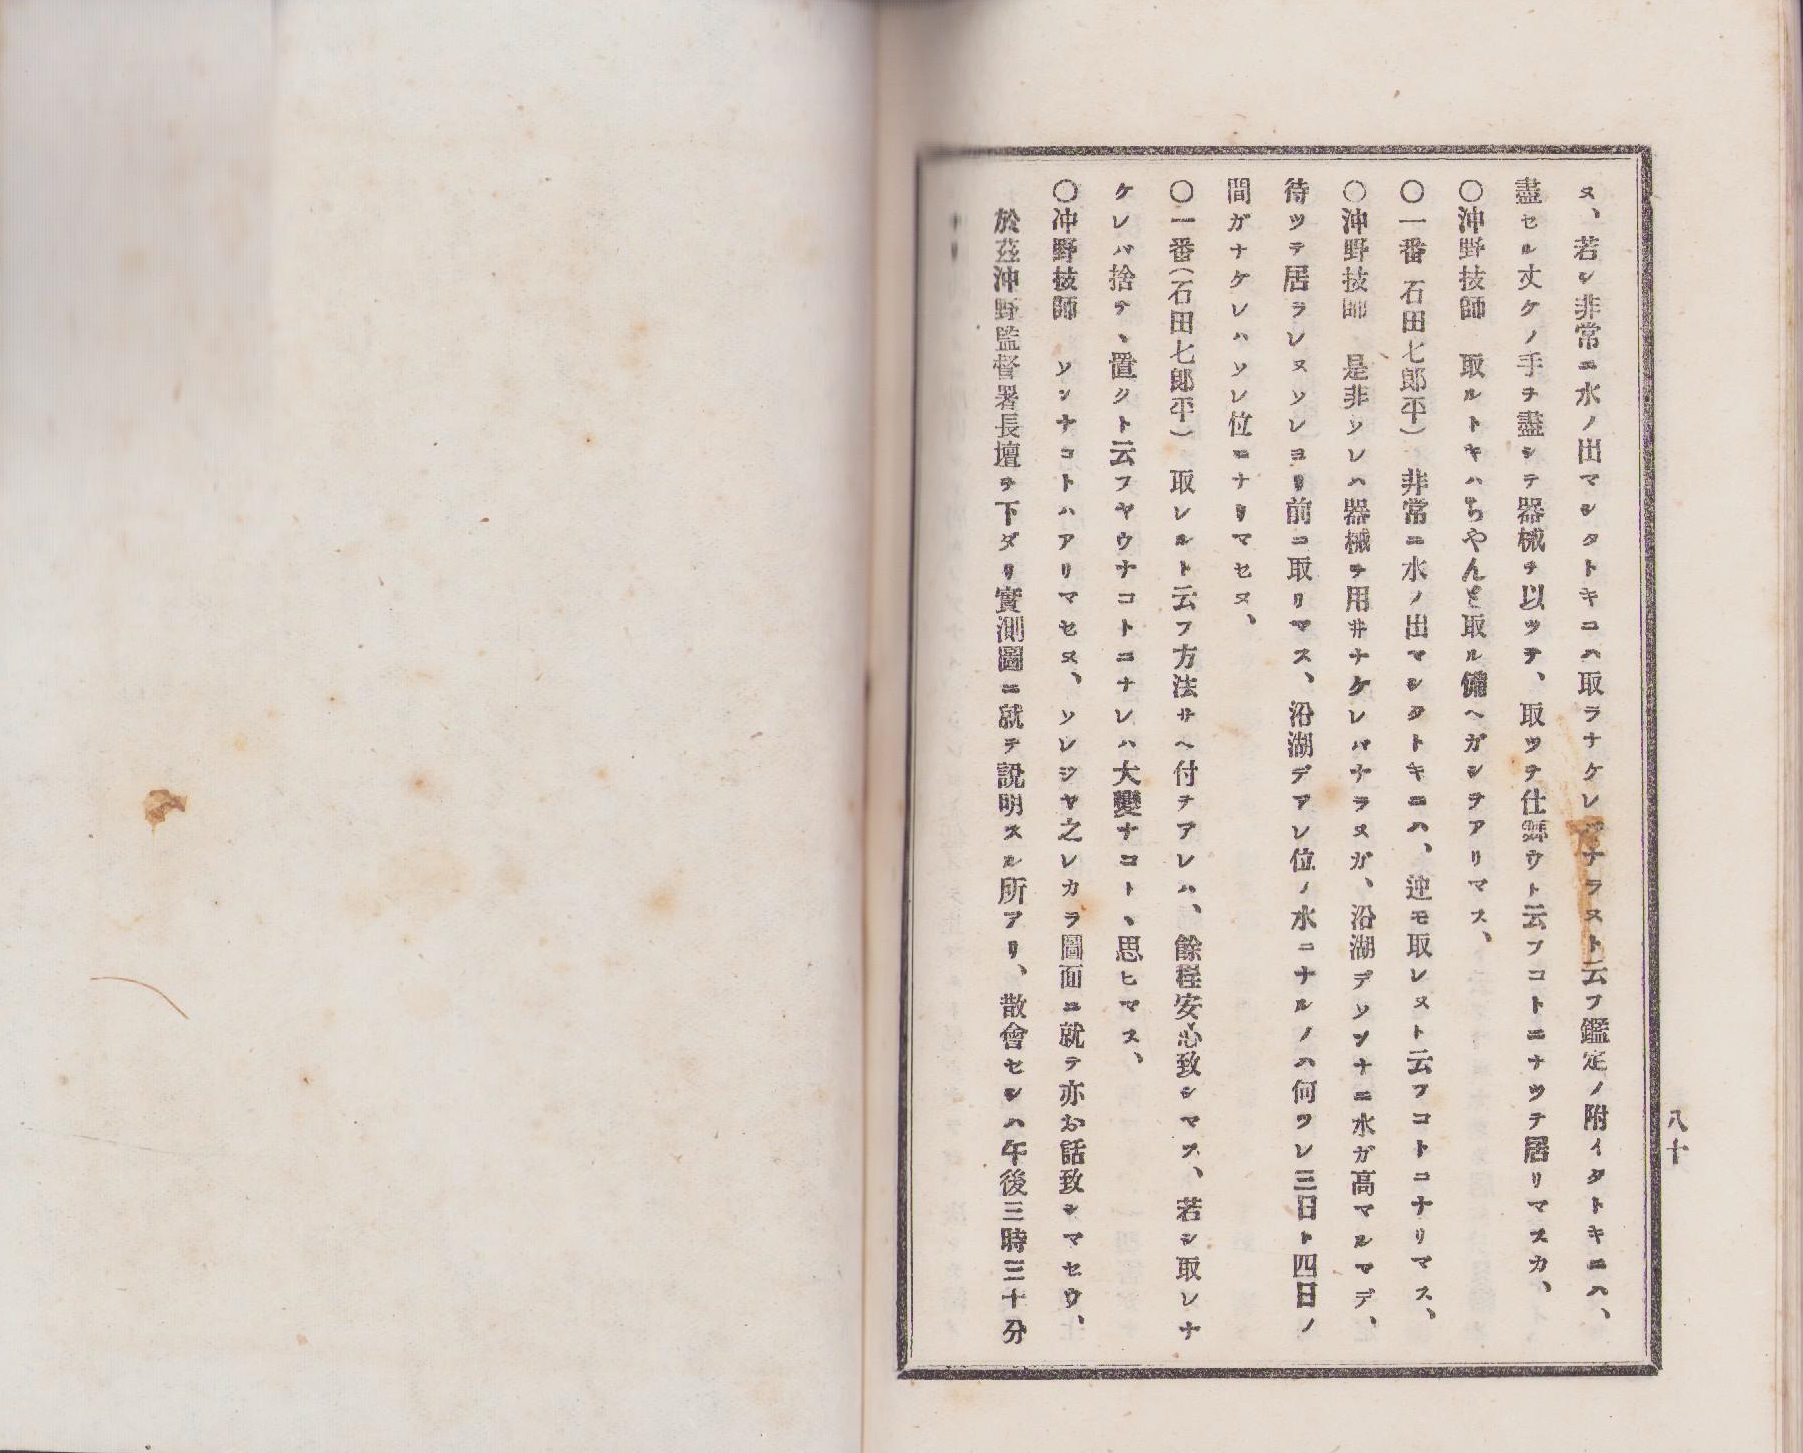 ヌ、若シ非常ニ水ノ出マシタトキニハ取ラナケレバナラヌト云フ鑑定ノ附イタトキニハ、
盡セル丈ケノ手ヲ盡シテ器械ヲ以ツテ、取ツテ仕舞ウト云フコトニナツテ居リマスカ、
〇沖野技師　取ルトキハちやんと取ル備ヘガシテアリマス、
〇一番 石田七郎平）　非常ニ水ノ出マシタトキニハ、迚モ取レヌト云フコトニナリマス、
〇沖野技師　是非ソレハ器械ヲ用井ナケレバナラヌガ、沿湖デソンナニ水ガ高マルマデ、
待ツテ居ラレヌソレヨリ前ニ取リマス、沿湖デアレ位ノ水ニナルノハ何ツレ三日ト四日ノ
間ガナケレハソレ位ニナリマセヌ、
〇一番（石田七郎平）　取レルト云フ方法サヘ付テアレハ、餘程安心致シマス、若シ取レナ
ケレバ捨テ、置クト云フヤウナコトニナレハ大變ナコト、思ヒマス、
〇沖野技師　ソンナコトハアリマセヌ、ソレジヤ之レカラ圖面ニ就テ亦お話致シマセウ、
於茲沖野監督署長壇ヲ下ダリ實測圖ニ就テ説明スル所アリ、散會セシハ午後三時三十分
ナリ
八十